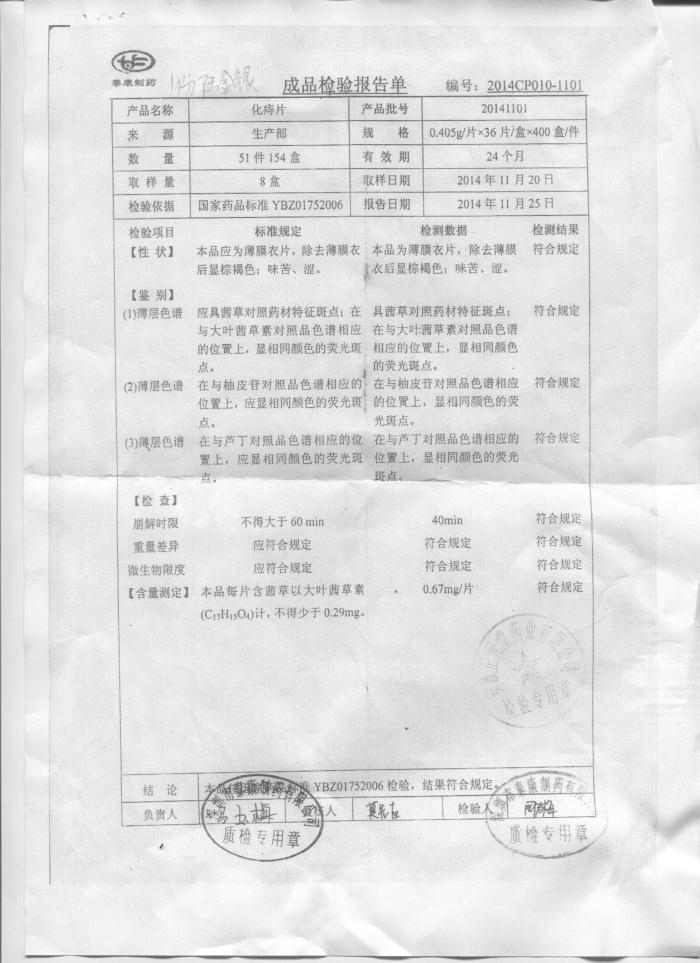 泰康制药
成品检验报告单 编号：2014CP010-1101
产品名称 化痔片 产品批号 20141101
来 源 生产部 规 格 0.405g/片×36 片/盒×400 盒/件
数 量 51 件 154 盒 有 效 期 24 个月
取 样 量 8 盒 取样日期 2014 年 11 月 20 日
检验依据 国家药品标准 YBZ01752006 报告日期 2014 年 11 月 25 日
检验项目 标准规定 检测数据 检测结果
【性 状】 本品应为薄膜衣片，除去薄膜衣 本品为薄膜衣片，除去薄膜 符合规定
后显棕褐色；味苦、涩。 衣后显棕褐色；味苦、涩。
【鉴 别】
(1)薄层色谱 应具茜草对照药材特征斑点；在 具茜草对照药材特征斑点； 符合规定
与大叶茜草素对照品色谱相应 在与大叶茜草素对照品色谱
的位置上，显相同颜色的荧光斑 相应的位置上，显相同颜色
点。 的荧光斑点。
(2)薄层色谱 在与柚皮苷对照品色谱相应的 在与柚皮苷对照品色谱相应 符合规定
位置上，应显相同颜色的荧光斑 的位置上，显相同颜色的荧
点。 光斑点。
(3)薄层色谱 在与芦丁对照品色谱相应的位 在与芦丁对照品色谱相应的 符合规定
置上，应显相同颜色的荧光斑 位置上，显相同颜色的荧光
点。 斑点。
【检 查】
崩解时限 不得大于 60 min 40min 符合规定
重量差异 应符合规定 符合规定 符合规定
微生物限度 应符合规定 符合规定 符合规定
【含量测定】 本品每片含茜草以大叶茜草素 0.67mg/片 符合规定
(C₁₇H₁₅O₄)计，不得少于 0.29mg。
检验专用章
结 论 本品 YBZ01752006 检验，结果符合规定。
负责人 核人 检验人
质检专用章 质检专用章